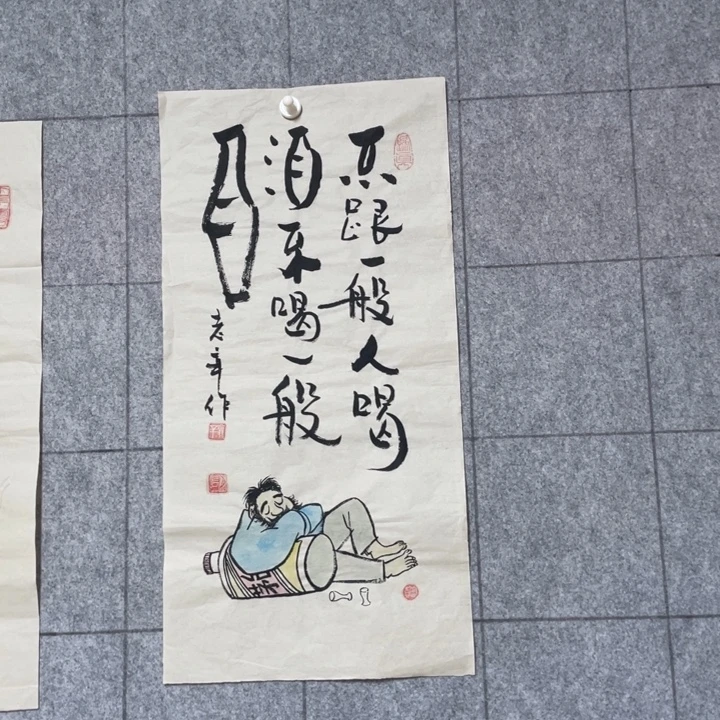 不跟一般人喝
酒不喝一般
老辛作